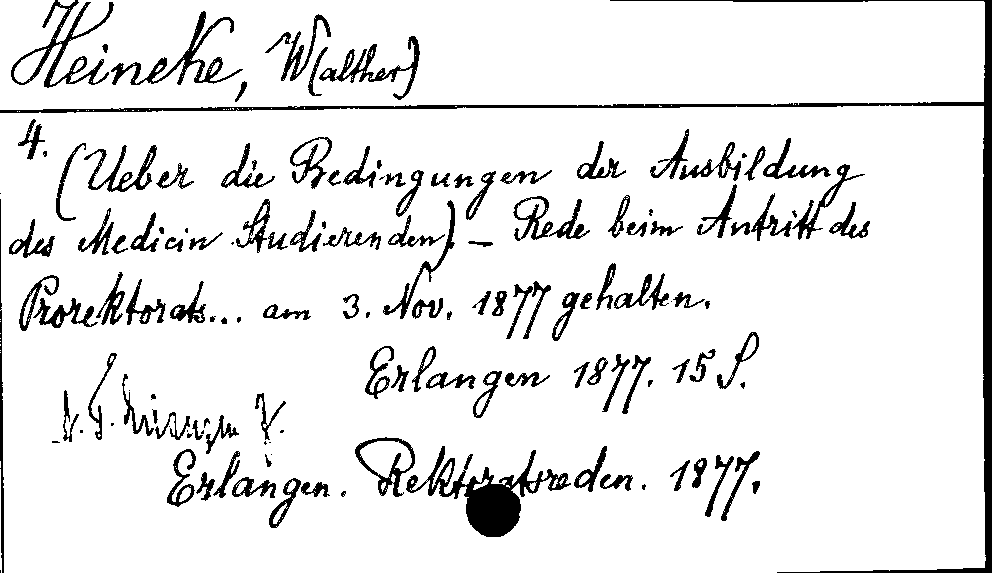 Heineke, W(alther)
4.
(Ueber die Bedingungen der Ausbildung
des Medicin Studierenden). – Rede beim Antritt des
Prorektorats... am 3. Nov. 1877 gehalten.
Erlangen 1877. 15 S.
Erlangen. Rektoratsreden. 1877.